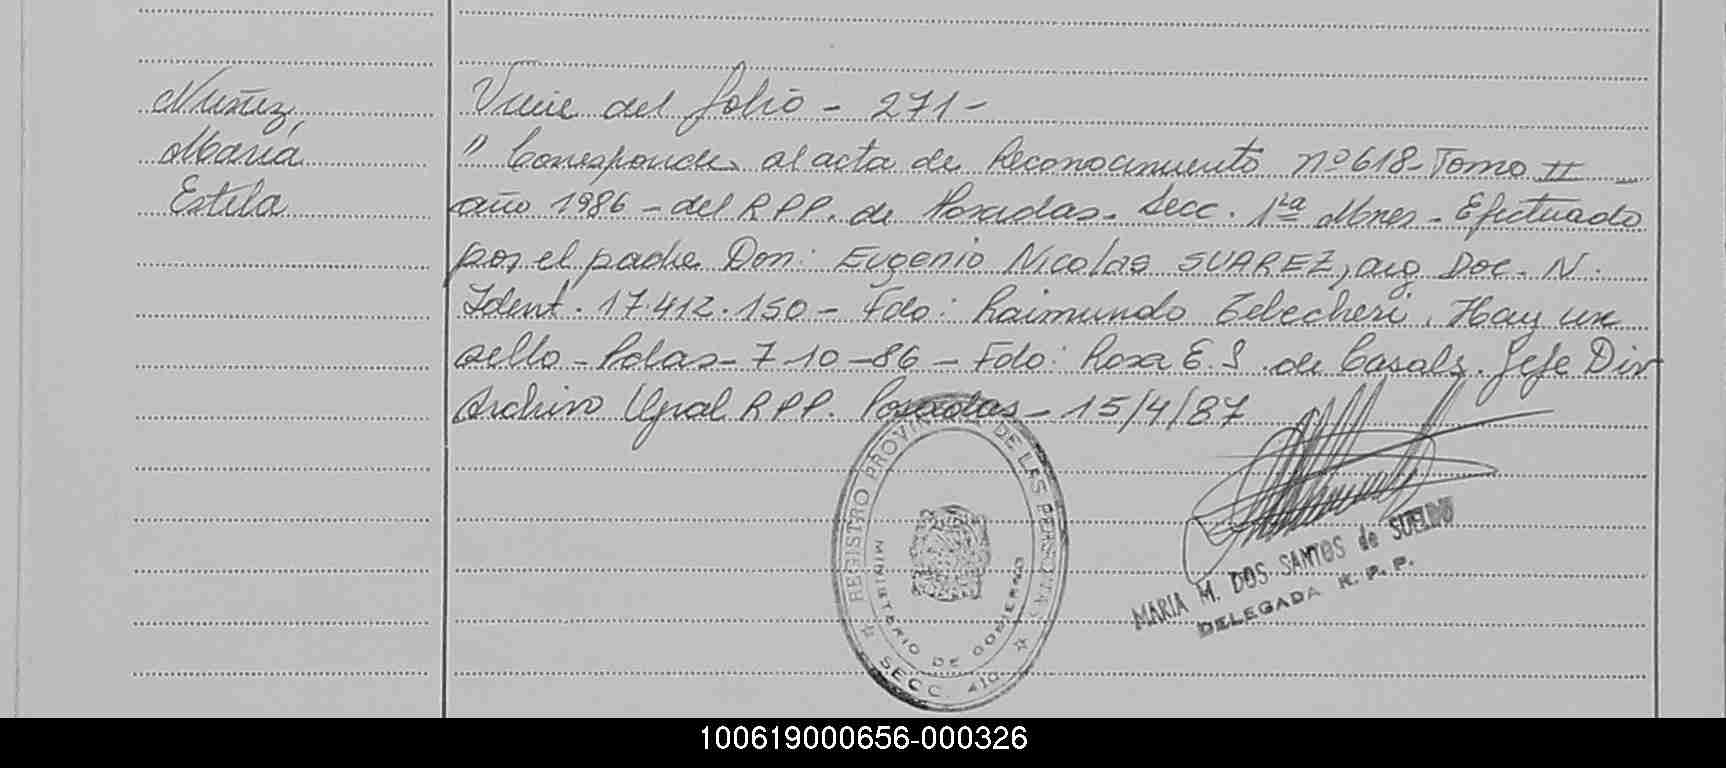 Nuñez,
María
Estela
Viene del folio - 271 -
" Corresponde al acta de Reconocimiento nº 618 - Tomo II -
año 1986 - del R.P.P. de Posadas. Secc. 1ra Mnes - Efectuado
por el padre Don: Eugenio Nicolas SUAREZ, arg Doc. N.
Ident. 17.412.150 - Fdo: Raimundo Telecheri. Hay un
sello - Pdas - 7-10-86 - Fdo: Rosa E. S. de Casals. Jefe Div
Archivo Gral R.P.P. Posadas - 15/4/87
REGISTRO PROVINCIAL DE LAS PERSONAS
MINISTERIO DE GOBIERNO
SECC. 410
MARIA M. DOS SANTOS de SUELDO
DELEGADA R. P. P.
100619000656-000326